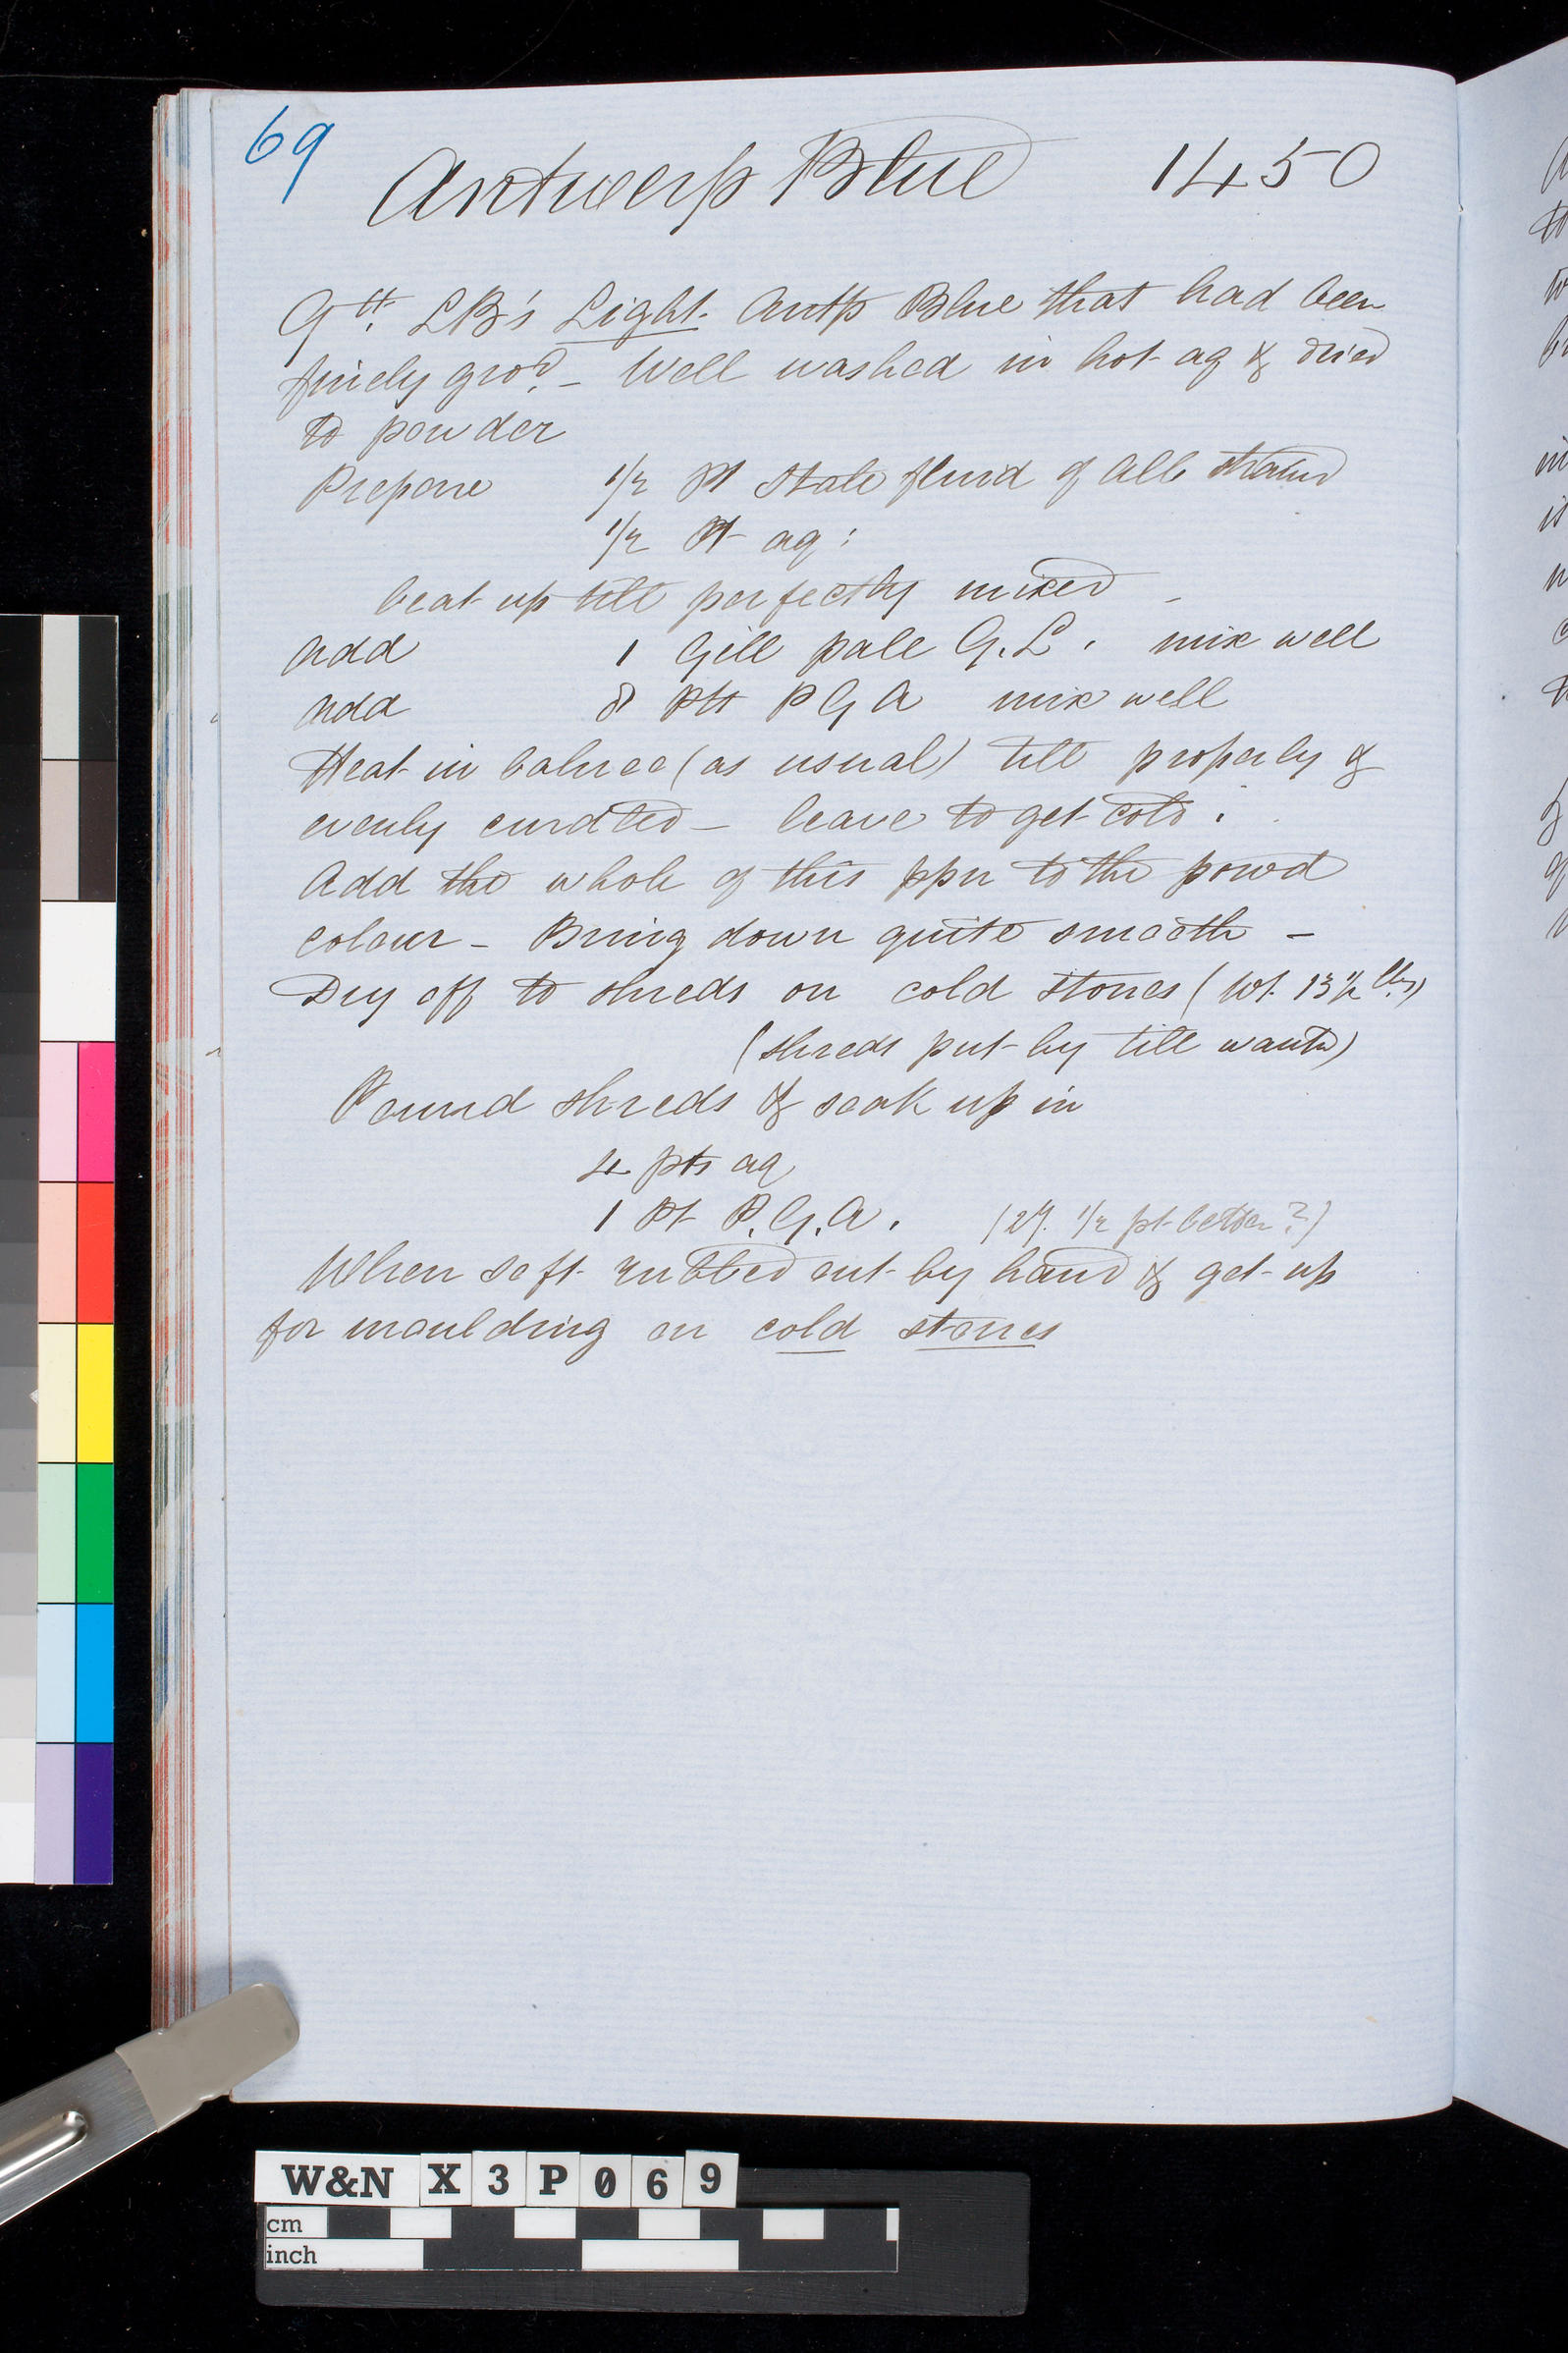 69
Antwerp Blue 1450
9 tt. LB's Light. Antp Blue that had been
finely gro^d. – Well washed in hot aq & dried
to powder
Prepare 1/2 Pt Stale fluid of Alb straind
1/2 Pt aq:
beat up till perfectly mixed –
Add 1 Gill pale G.L. mix well
Add 8 Pts P G A mix well
Heat in balnea (as usual) till properly &
evenly curdled – leave to get cold.
Add the whole of this ppn to the powd
colour – Bring down quite smooth –
Dry off to shreds on cold stones (Wt. 13 1/2 lbs)
(shreds put by till wantd)
Pound shreds & soak up in
4 pts aq
1 Pt P.G.A. 1/2 pt better?)
When soft rubbed out by hand & get up
for moulding on cold stones
W&N X 3 P 0 6 9
cm
inch